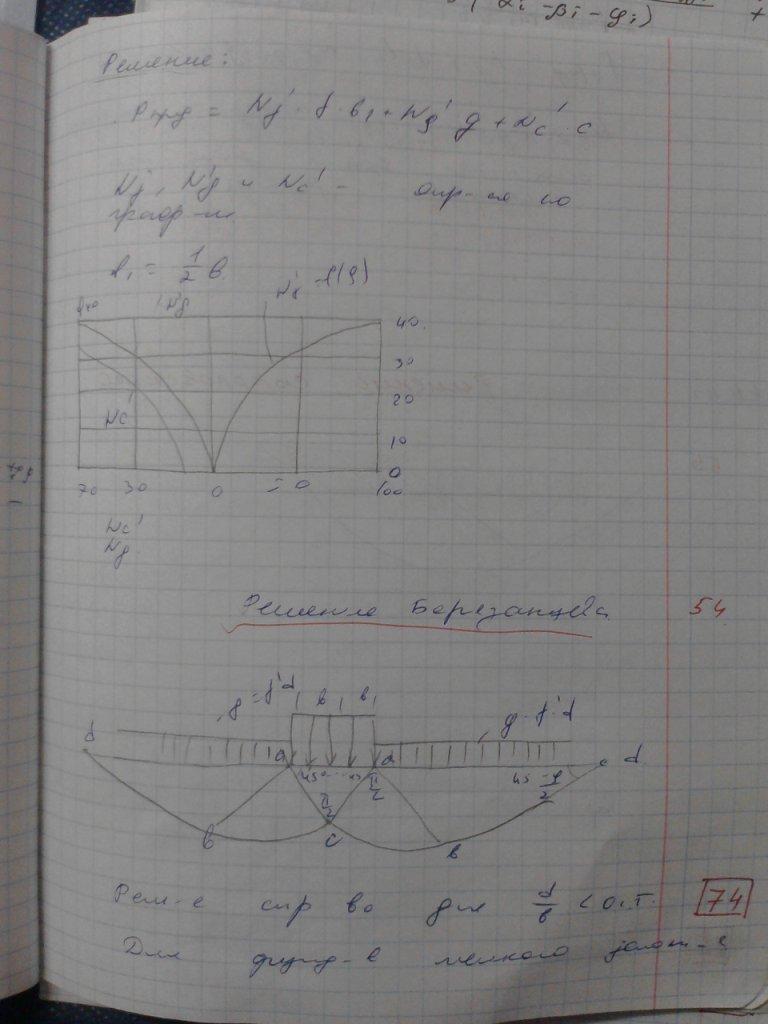 Решение:
Pпред = Nγ' · γ · b₁ + Nq' q + Nc' · c
Nγ', Nq' и Nc' - опр-ся по
граф-
b₁ = 1/2 b
Nq'
Nγ' = f(φ)
40
30
20
10
0
Nc'
70 30 0 50 100
Nc'
Nq'
Решение Березанцева 54
q = γ'd b₁ b₁
q = γ'd
d a a d
45° π/2 π/2 45 - φ/2
b c b
Реш-е спр во для d/b < 0,5. 74
Для фунд-в мелкого залож-я